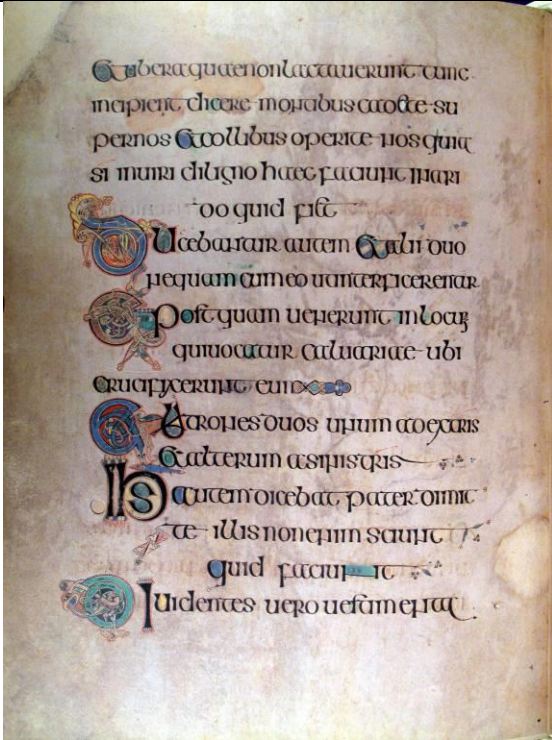 Et ubera quae non lactauerunt tunc
incipient dicere montibus cadete su
per nos et collibus operite nos quia
si in uiridi ligno haec faciunt in ari
do quid fiet
Ducebantur autem et alii duo
nequam cum eo ut interficerentur
Et postquam uenerunt in locum
qui uocatur caluariae ubi
crucifixerunt eum
Et latrones duos unum a dextris
et alterum a sinistris
Ihs autem dicebat pater dimit
te illis non enim sciunt
quid faciunt
Diuidentes uero uestimenta